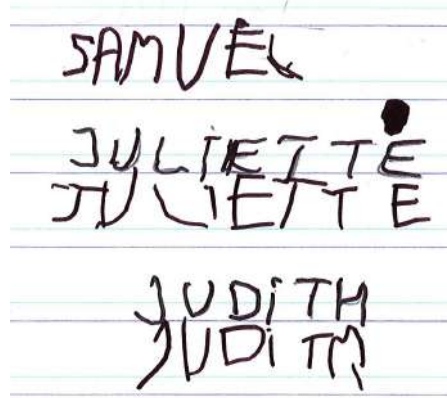 SAMUEL
JULIETTE
JULIETTE
JUDiTH
JUDiTH